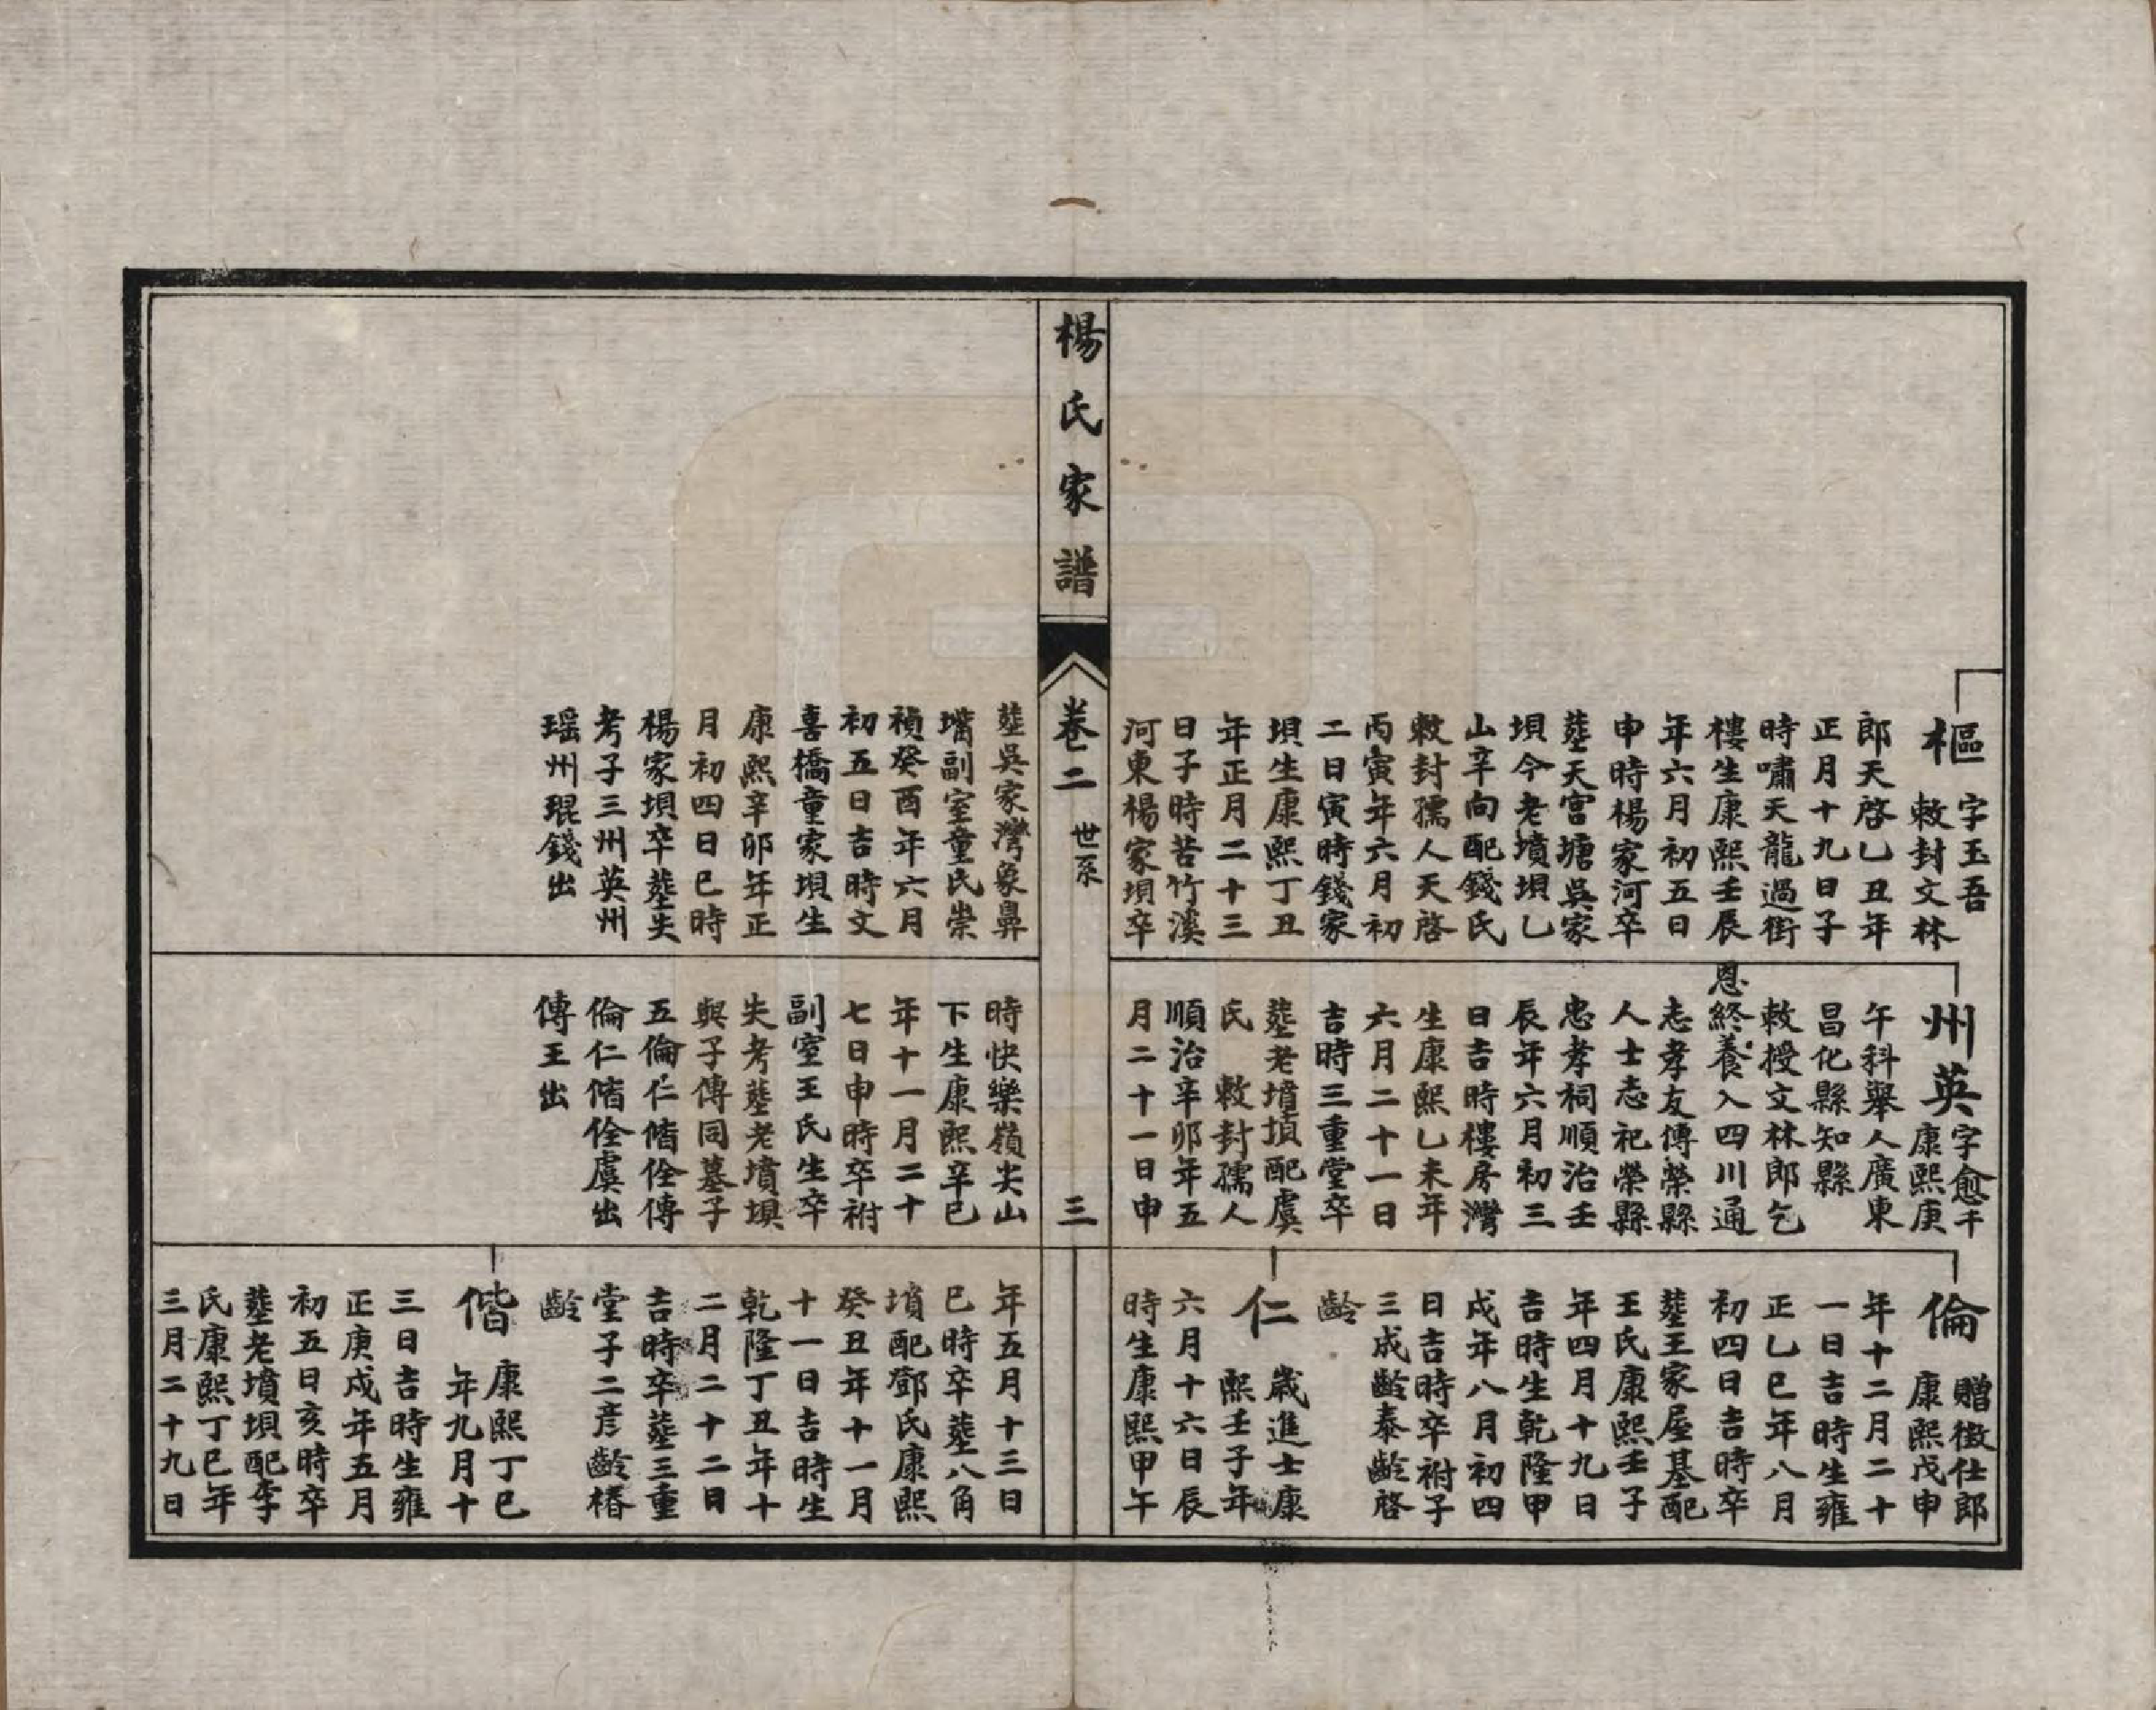 樞 字玉吾
敕封文林
郎天啓乙丑年
正月十九日子
時嘯天龍過街
樓生康熙壬辰
年六月初五日
申時楊家河卒
塟天宮塘吳家
垻今老墳垻乙
山辛向配錢氏
敕封孺人天啓
丙寅年六月初
二日寅時錢家
垻生康熙丁丑
年正月二十三
日子時苦竹溪
河東楊家垻卒
州英 字愈千
康熙庚
午科舉人廣東
昌化縣知縣
敕授文林郎乞
恩終養入四川通
志孝友傳榮縣
人士志祀榮縣
忠孝祠順治壬
辰年六月初三
日吉時樓房灣
生康熙乙未年
六月二十一日
吉時三重堂卒
塟老墳垻配虞
氏 敕封孺人
順治辛卯年五
月二十一日申
倫 贈徵仕郎
康熙戊申
年十二月二十
一日吉時生雍
正乙巳年八月
初四日吉時卒
塟王家屋基配
王氏康熙壬子
年四月十九日
吉時生乾隆甲
戌年八月初四
日吉時卒祔子
三成齡泰齡啓
齡
仁 歲進士康
熙壬子年
六月十六日辰
時生康熙甲午
楊氏家譜
卷二 世系
三
塟吳家灣象鼻
嘴副室童氏崇
禎癸酉年六月
初五日吉時文
喜橋童家垻生
康熙辛卯年正
月初四日巳時
楊家垻卒塟失
考子三州英州
瑶州琨錢出
時快樂嶺尖山
下生康熙辛巳
年十一月二十
七日申時卒祔
副室王氏生卒
失考塟老墳垻
與子傳同墓子
五倫仁偕佺傳
倫仁偕佺虞出
傳王出
年五月十三日
巳時卒塟八角
墳配鄧氏康熙
癸丑年十一月
十一日吉時生
乾隆丁丑年十
二月二十二日
吉時卒塟三重
堂子二彦齡椿
齡
偕 康熙丁巳
年九月十
三日吉時生雍
正庚戌年五月
初五日亥時卒
塟老墳垻配李
氏康熙丁巳年
三月二十九日